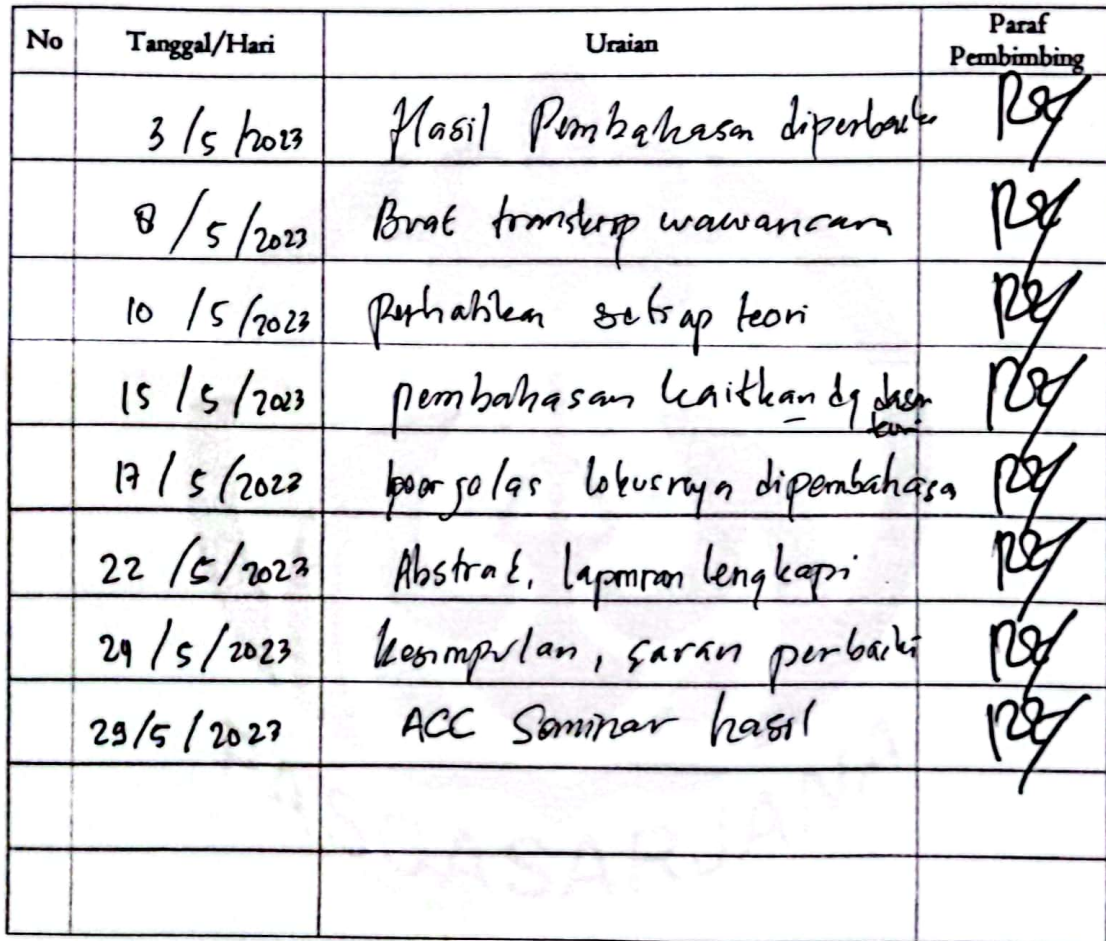 No Tanggal/Hari Uraian Paraf Pembimbing
3/5/2023 Hasil Pembahasan diperbaiki
8/5/2023 Buat transkrip wawancara
10/5/2023 Perhatikan setiap teori
15/5/2023 pembahasan kaitkan dg dasar teori
17/5/2023 lokusnya dipembahasa
22/5/2023 Abstrak, lampiran lengkapi
29/5/2023 kesimpulan, saran perbaiki
29/5/2023 ACC Seminar hasil